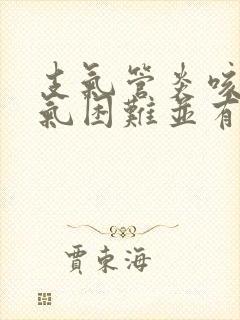 支氣管炎咳
氣困難並有
賈東海